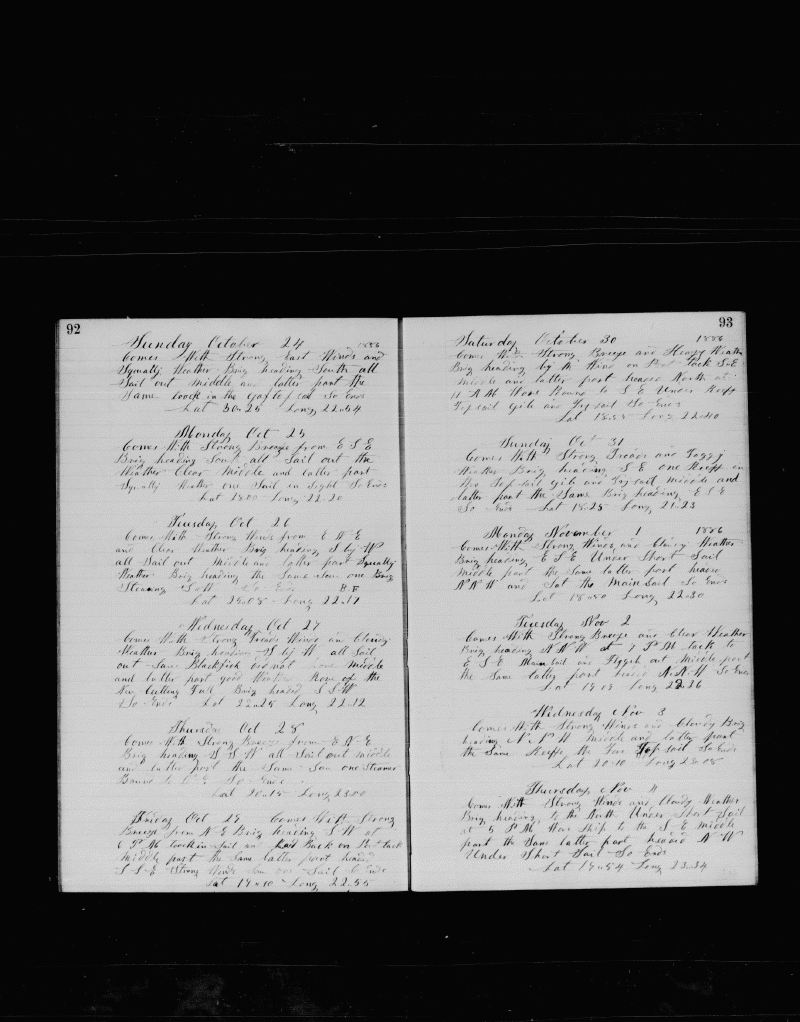 92
Sunday October 24 1886
Comes With Strong East Winds and
Squally Weather Brig heading South all
Sail out Middle and latter part the
Same took in the gaftopsail So Ends
Lat 30-25 Long 22-54
Monday Oct 25
Comes With Strong Breeze from E S E
Brig heading South all Sail out the
Weather Clear Middle and latter part
Squally Weather one Sail in Sight So Ends
Lat 28-00 Long 22-20
Tuesday Oct 26
Comes With Strong Winds from E N E
and Clear Weather Brig heading S by W
all Sail out Middle and latter part Squally
Weather Brig heading the Same Saw one Brig
Steering So Ends
Lat 25-08 Long 22-17
Wednesday Oct 27
Comes With Strong Trade Winds and Cloudy
Weather Brig heading S by W all Sail
out Saw Blackfish did not Middle
and latter part good Weather the
New Cutting Fall Brig headed S S W
So Ends Lat 22-28 Long 22-12
Thursday Oct 28
Comes With Strong Breeze from E N E
Brig heading S S W all Sail out Middle
and latter part the Same Saw one Steamer
Bound to So Ends
Lat 20-18 Long 23-00
Friday Oct 29 Comes With Strong
Breeze from N E Brig heading S W at
6 P M took in Sail and Laid Back on Port tack
Middle part the Same latter part headed
S S E Strong Winds Saw one Sail So Ends
Lat 19-10 Long 22-55
93
Saturday October 30 1886
Comes With Strong Breeze and Heavy Weather
Brig heading by the Wind on Port Tack S E
Middle and latter part headed North at
11 A M Wore Round to S E Under
Topsail Gib and Trysail So Ends
Lat 18-55 Long 22-10
Sunday Oct 31
Comes With Strong Trades and Foggy
Weather Brig heading S E one Reeff in
the Top sail gib and Try sail Middle and
latter part the Same Brig heading E S E
So Ends Lat 18-25 Long 21-23
Monday November 1 1886
Comes With Strong Winds and Cloudy Weather
Brig heading E S E Under Short Sail
Middle part the Same latter part headed
N N W and Set the Main Sail So Ends
Lat 18-50 Long 22-30
Tuesday Nov 2
Comes With Strong Breeze and Clear Weather
Brig heading N N W at 7 P M tack to
E S E Main Sail and out Middle part
the Same latter part headed N N W So Ends
Lat 19-09 Long 22-26
Wednesday Nov 3
Comes With Strong Winds and Cloudy Brig
heading N N W Middle and latter part
the Same Reeffe the Fore Top sail So Ends
Lat 20-10 Long 23-08
Thursday Nov 4
Comes With Strong Winds and Cloudy Weather
Brig heading to the North Under Short Sail
at 5 P M War Ship to the S E Middle
part the Same latter part headed N W
Under Short Sail So Ends
Lat 19-54 Long 23-34